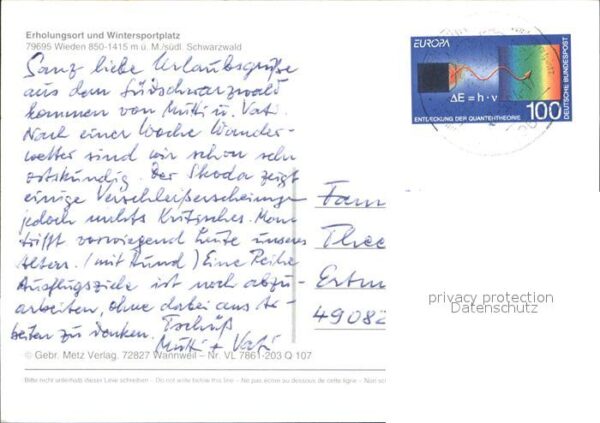 Erholungsort und Wintersportplatz
79695 Wieden 850-1415 m ü. M./südl. Schwarzwald
Ganz liebe Urlaubsgrüße
aus dem Südschwarzwald
kommen von Mutti u. Vati.
Nach einer Woche Wander-
wetter sind wir schon sehr
ortskundig. Der Skoda zeigt
einige Verschleißerscheinungen
jedoch nichts Kritisches. Man
trifft vorwiegend Leute unseres
Alters. (mit Hund) Eine Reihe
Ausflugsziele ist noch abzu-
arbeiten, ohne dabei ans Ar-
beiten zu denken. Tschüß
Mutti + Vati
© Gebr. Metz Verlag. 72827 Wannweil – Nr. VL 7861-203 Q 107
Bitte nicht unterhalb dieser Linie schreiben - Do not write below this line - Ne pas écrire au dessous de cette ligne - Non
EUROPA
ΔE = h · ν
ENTDECKUNG DER QUANTENTHEORIE
100
DEUTSCHE BUNDESPOST
Fam
Thee
49082
privacy protection
Datenschutz